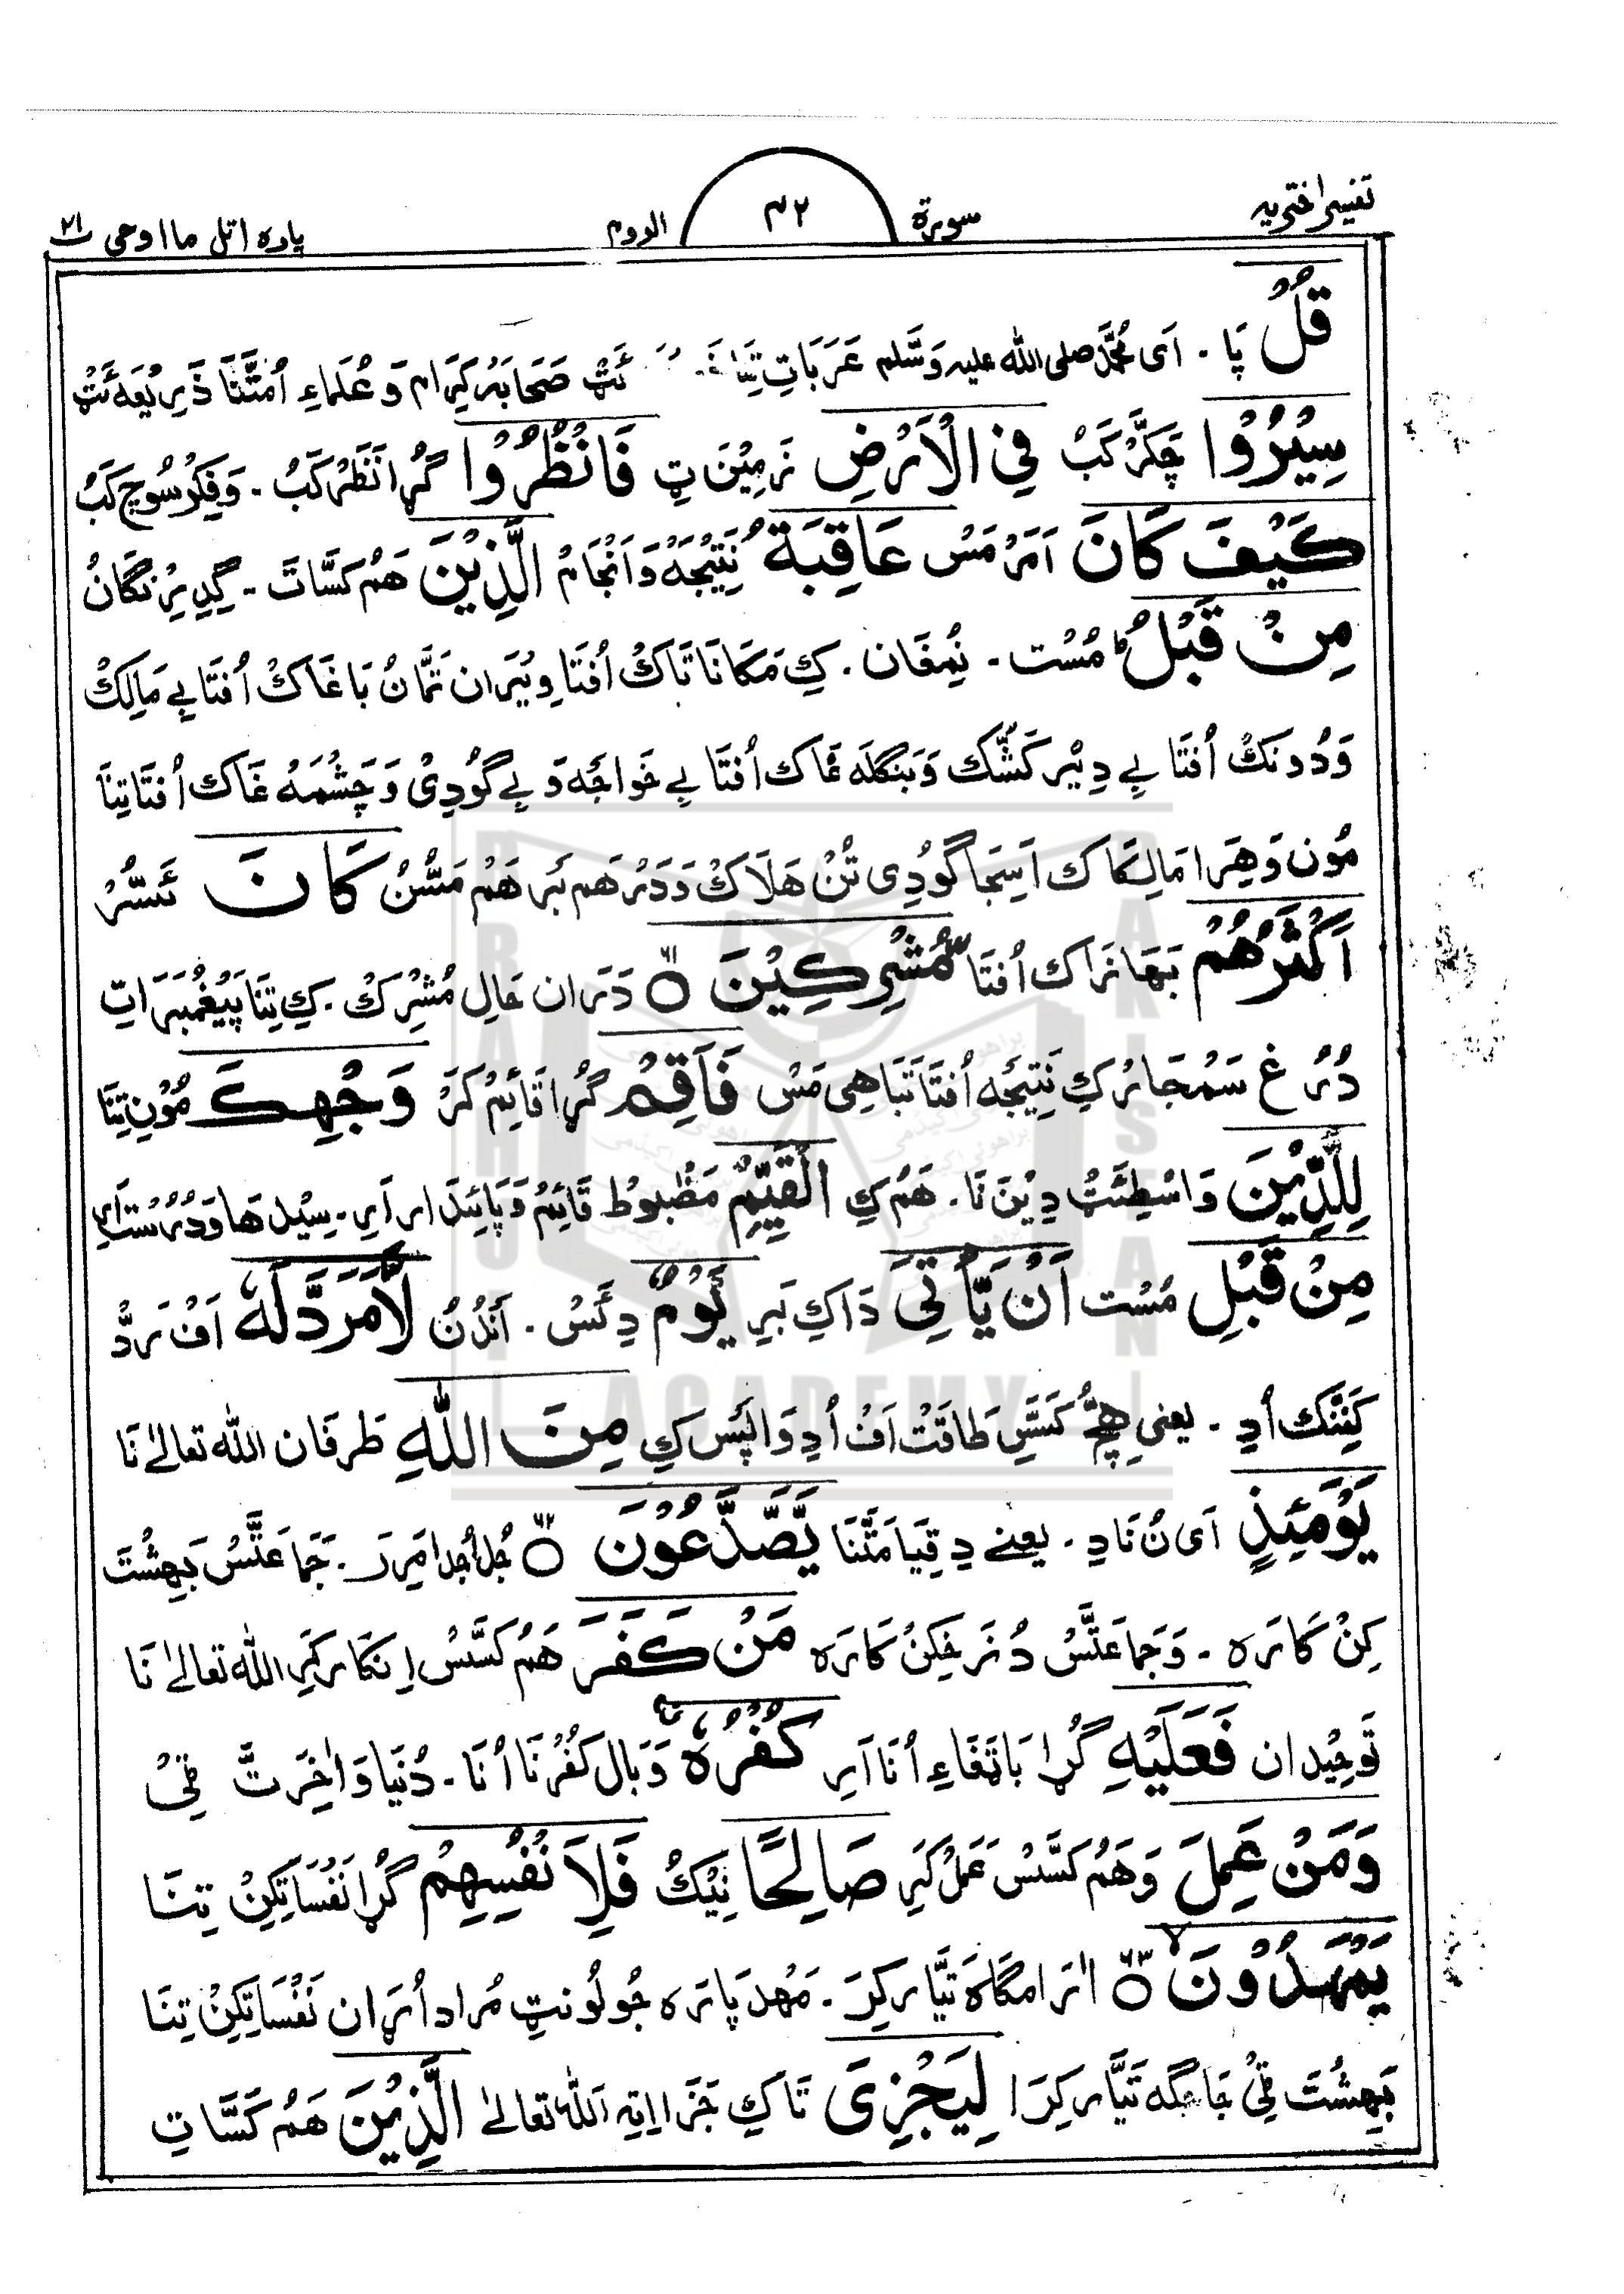 تفسیر اختریہ سورۃ ۴۲ الروم پارہ اتل ما اوحی ۲۱
قُلْ پَا ۔ اَی مُحَمَّد صلی اللہ علیہ وَسَّلم عَرَبَاتِ ئَٹ صَحَابَہ کِرَام وَ عُلَماءِ اُمَّتَنَا ذَرِیْعَہ ئَٹْ
سِيْرُوْا چَکَّرْ کَبْ فِي الْاَرْضِ زَمِیْنَ ٹِ فَانْظُرُوْا گُڑا نَظَرْ کَبُ ۔ وَ فِکِرْ سُوچ کَبُ
كَيْفَ كَانَ اَمَرْ مَسْ عَاقِبَةُ نَتِیْجَہ وَ اَنْجَام الَّذِيْنَ ھَمُ کَسَّاتَ ۔ گِدِرِنْگَانُ
مِنْ قَبْلُ مُسْت ۔ نِمْغَان ۔ کِ مَکَانَاتَاکْ اُفتَا وِیْرَان تَمَّانُ بَاغَاکْ اُفتَا بِے مَالِکْ
وَ دُونکْ اُفتَا بِے دِیْر کَشّک وَ بَنگلَہ غَاک اُفتَا بِے خَواجَہ وَ بِے گوُدِیْ وَ چَشْمَہ غَاک اُفتَا تِنَا
مُون وَ ھِرَا مَالِکَاک اَسِجَا گوُدِی تُنْ ھَلَاکْ وَ دَرْ ھَم بَر ھَمْ مَسُّنْ كَانَ ئَسُّرْ
اَكْثَرُهُمْ بَھَازَاک اُفتَا مُشْرِكِيْنَ ۝ دَرَان حَالِ مُشْرِکْ ۔ کِ تِنَا پَیْغَمْبَرَاتِ
دُرُغ سَمْجَارْ کِ نَتِیجَہ اُفتَا تَبَاھِی مَسْ فَاَقِمْ گُڑا قَائِمْ کَرْ وَجْهَكَ مُوْنِ تِنَا
لِلدِّيْنِ وَاسْطِئَٹْ دِیْنَ نَا ۔ ھَمُ کِ الْقَيِّمِ مَظْبوُطْ قَائِمْ وَ پَائِیدَار اَرِ ۔ سِیْدھَا وَ دُرُسْت اَرِ
مِنْ قَبْلِ مُسْت اَنْ يَّاْتِيَ دَاکِ بَرِ يَوْمٌ دِئَسْ ۔ اَنْدُنُ لَّا مَرَدَّ لَهٗ اَفْ رَدُّ
کَنِنْگ اُدِ ۔ یعنی ھِچُّ کَسَّسِ طَاقَتْ اَفْ اُدِ وَاپَسْ کِ مِنَ اللهِ طَرفَان اللہ تعالیٰ نَا
يَوْمَئِذٍ اَی نُ نَا دِ ۔ یعنے دِ قِیَامَتَّنَا يَّصَّدَّعُوْنَ ۝ جُدا جُدا مَرِرَ ۔ جَمَاعَتَّسْ بَہِشْتَ
کِنْ کَارَہ ۔ وَ جَمَاعَتَّسْ دُزَخِکِنْ کَارَہ مَنْ كَفَرَ ھَمُ کَسَّسْ اِنکَار کَرِ اللہ تعالیٰ نَا
تَوحِیْدان فَعَلَيْهِ گُڑا بَاتَغَاءِ اُنَا اَرِ كُفْرُهٗ وَبَالِ کُفْرُنَا اُنَا ۔ دُنیَا وَاٰخِرَتَّ ٹِیْ
وَمَنْ عَمِلَ وَ ھَمُ کَسَّسْ عَمَلْ کَرِ صَالِحًا نِیْکْ فَلِاَنْفُسِهِمْ گُڑا نَفْسَاتَکِنْ تِنَا
يَمْهَدُوْنَ ۝ اٰرَامگاہ تَیَّار کِرَ ۔ مَھْد پَارَہ جُولُونَٹِ مُراد اُرَان نَفْسَاتِکِنْ تِنَا
بَہِشْتَ ٹِیْ جَاگَہ تَیَّار کِرَا لِيَجْزِيَ تَاکِ جَزَا اِتِہ اَللہ تعالیٰ الَّذِيْنَ ھَمُ کَسَّاتِ